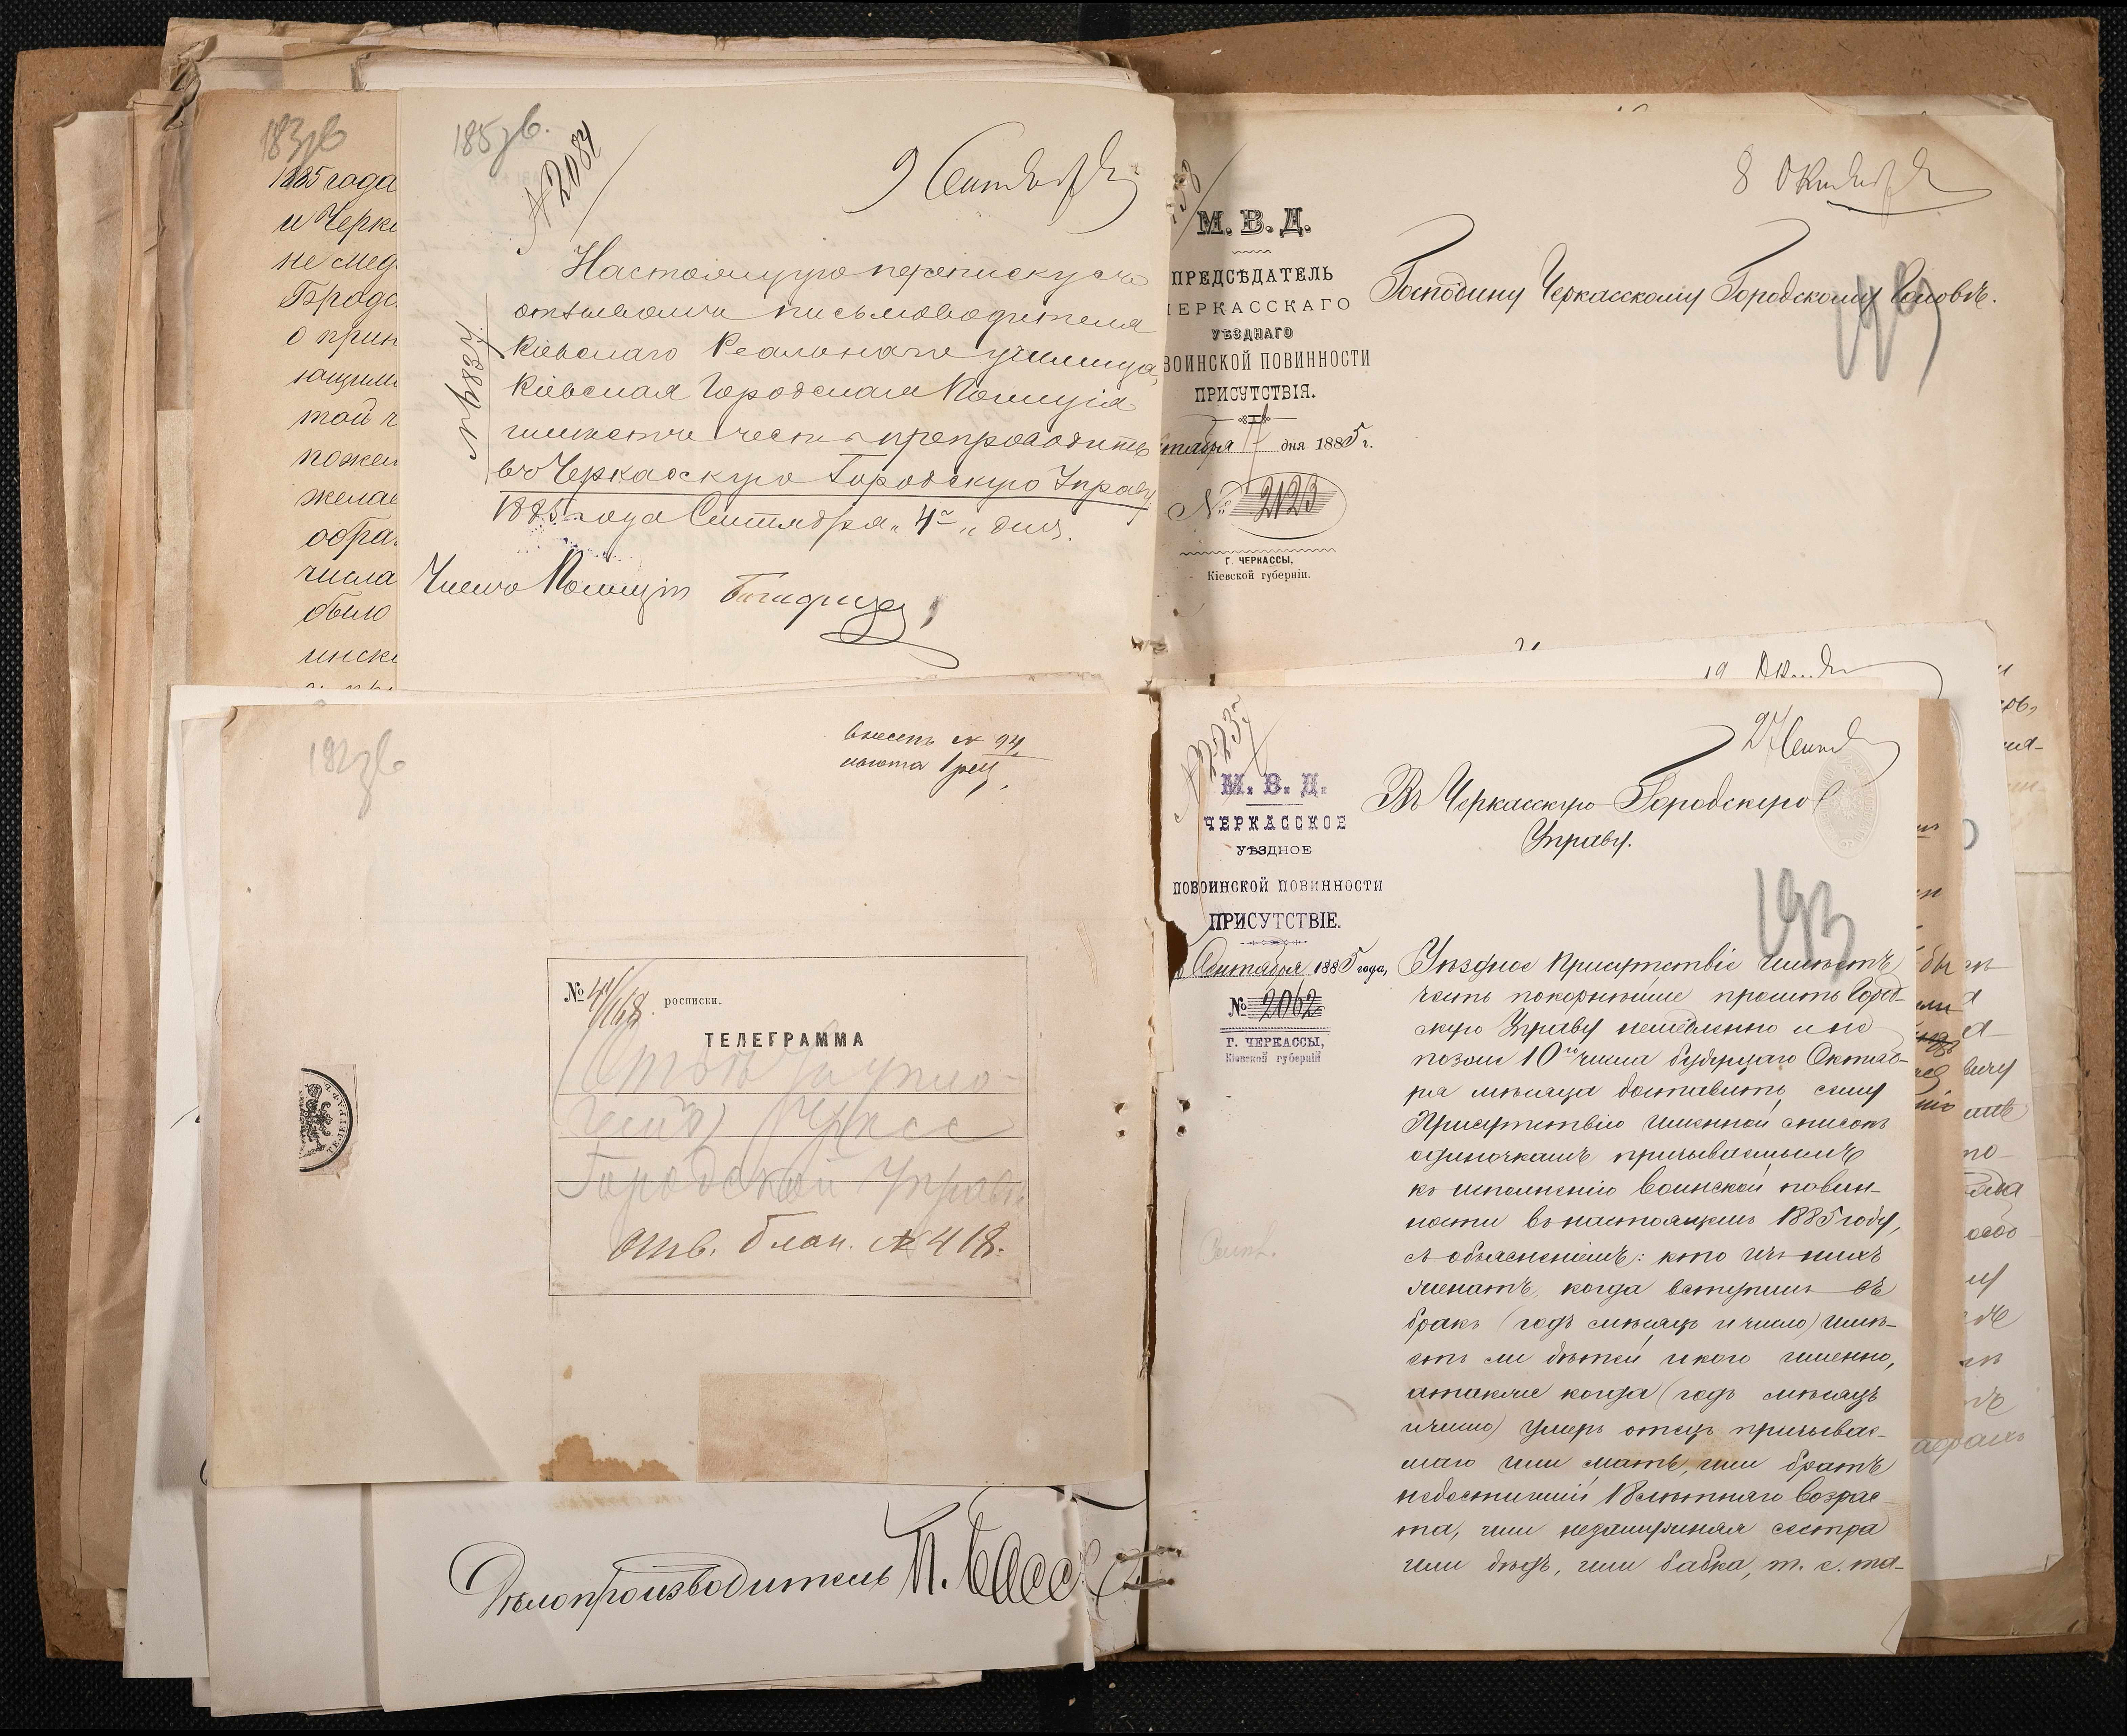 183зв
1885 года
и Черка
не мед
Городс
о прин
ющими
той ч
пожел
желае
обра
числа
было
инска
185зв.
№ 2084
9 Сентября
Настоящую переписку съ
отзывомъ письмоводителя
Кіевскаго Реальнаго училища,
Кіевская Городская Полиція
имѣетъ честь препроводить
въ Черкасскую Городскую Управу
1885 года Сентября „4го„ дня.
Членъ Полиціи
8 Октября
М. В. Д.
ПРЕДСѢДАТЕЛЬ
ЧЕРКАССКАГО
УѢЗДНАГО
ВОИНСКОЙ ПОВИННОСТИ
ПРИСУТСТВІЯ.
дня 1885 г.
№ 2123
Г. ЧЕРКАССЫ,
Кіевской губерніи.
Господину Черкасскому Городскому Головѣ.
19
192зв
внесенъ № 94
№ 41/168 росписки.
ТЕЛЕГРАММА
Городской Управы
отв. блан. № 418.
Дѣлопроизводитель П.
27 Сент
№ 2237
М. В. Д.
ЧЕРКАССКОЕ
УѢЗДНОЕ
ПОВОИНСКОЙ ПОВИННОСТИ
ПРИСУТСТВІЕ.
Сентября 1885 года,
№ 2062
Г. ЧЕРКАССЫ,
Кіевской губерніи
Въ Черкасскую Городскую
Управу.
193
Уѣздное Присутствіе имѣетъ
честь покорнѣйше просить Город-
скую Управу немедленно и не
позже 10го числа будущаго Октяб-
ря мѣсяца доставить сему
Присутствію именной списокъ
одиночкамъ призываемымъ
къ исполненію воинской повин-
ности въ настоящемъ 1885 году,
съ объясненіемъ: кто изъ нихъ
женатъ, когда вступилъ въ
бракъ (годъ мѣсяцъ и число) имѣ-
етъ ли дѣтей и кого именно,
а также когда (годъ мѣсяцъ
и число) умеръ отецъ призывае-
маго или мать, или братъ
недостигшій 18 лѣтняго возрас-
та, или незамужняя сестра
или дѣдъ, или бабка, т. е. та-